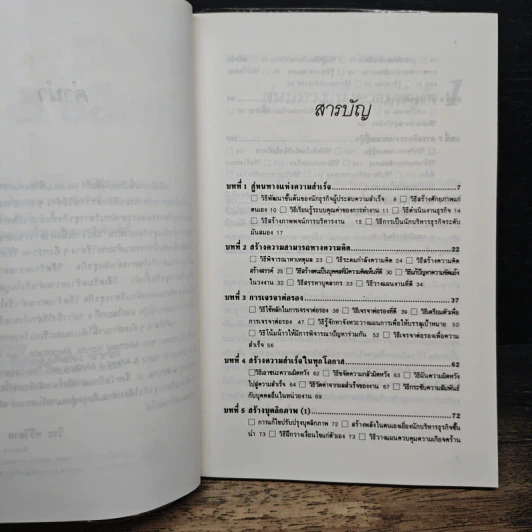 สารบัญ
บทที่ 1 สู่หนทางแห่งความสำเร็จ 7
□ วิธีพัฒนาขั้นต้นของนักธุรกิจผู้ประสบความสำเร็จ 8 □ วิธีสร้างศักยภาพแก่
ตนเอง 10 □ วิธีเรียนรู้ระบบคุณค่าของการทำงาน 11 □ วิธีดำเนินงานธุรกิจ 14
□ วิธีสร้างภาพพจน์การบริหารงาน 15 □ วิธีการเป็นนักบริหารธุรกิจระดับ
บันสมอง 17
บทที่ 2 สร้างความสามารถทางความคิด 22
□ วิธีพิจารณาหาเหตุผล 23 □ วิธีระดมกำลังความคิด 24 □ วิธีสร้างความคิด
สร้างสรรค์ 25 □ วิธีสร้างตนเป็นบุคคลที่มีความคิดเต็มที่ 30 □ วิธีแก้ปัญหาความขัดแย้ง
ในวงงาน 32 □ วิธีสรรหาบุคลากร 33 □ วิธีวางแผนงานที่ดี 34
บทที่ 3 การเจรจาต่อรอง 37
□ วิธีใช้หลักในการเจรจาต่อรอง 38 □ วิธีเจรจาต่อรองที่ดี 39 □ วิธีเตรียมตัวเพื่อ
การเจรจาต่อรอง 47 □ วิธีรู้จักหาจังหวะวางแผนการเพื่อให้บรรลุเป้าหมาย 50
□ วิธีโน้มน้าวให้มีการพิจารณาปัญหาร่วมกัน 52 □ วิธีเจรจาต่อรองเพื่อความ
สำเร็จ 56
บทที่ 4 สร้างความสำเร็จในทุกโอกาส 62
□ วิธีเอาชนะความผิดหวัง □ วิธีขจัดความกลัวผิดหวัง 63 □ วิธีผันความผิดหวัง
ไปสู่ความสำเร็จ 64 □ วิธีวัดค่าจากผลสำเร็จของงาน 67 □ วิธีกระชับความสัมพันธ์
กับบุคคลอื่นในหน่วยงาน 69
บทที่ 5 สร้างบุคลิกภาพ (1) 72
□ การแก้ไขปรับปรุงบุคลิกภาพ 72 □ สร้างพลังในตนเองเยี่ยงนักบริหารธุรกิจชั้น
นำ 73 □ วิธีฝึกวางเงื่อนไขแก่ตัวเอง 73 □ วิธีวางแผนควบคุมความเกียจคร้าน